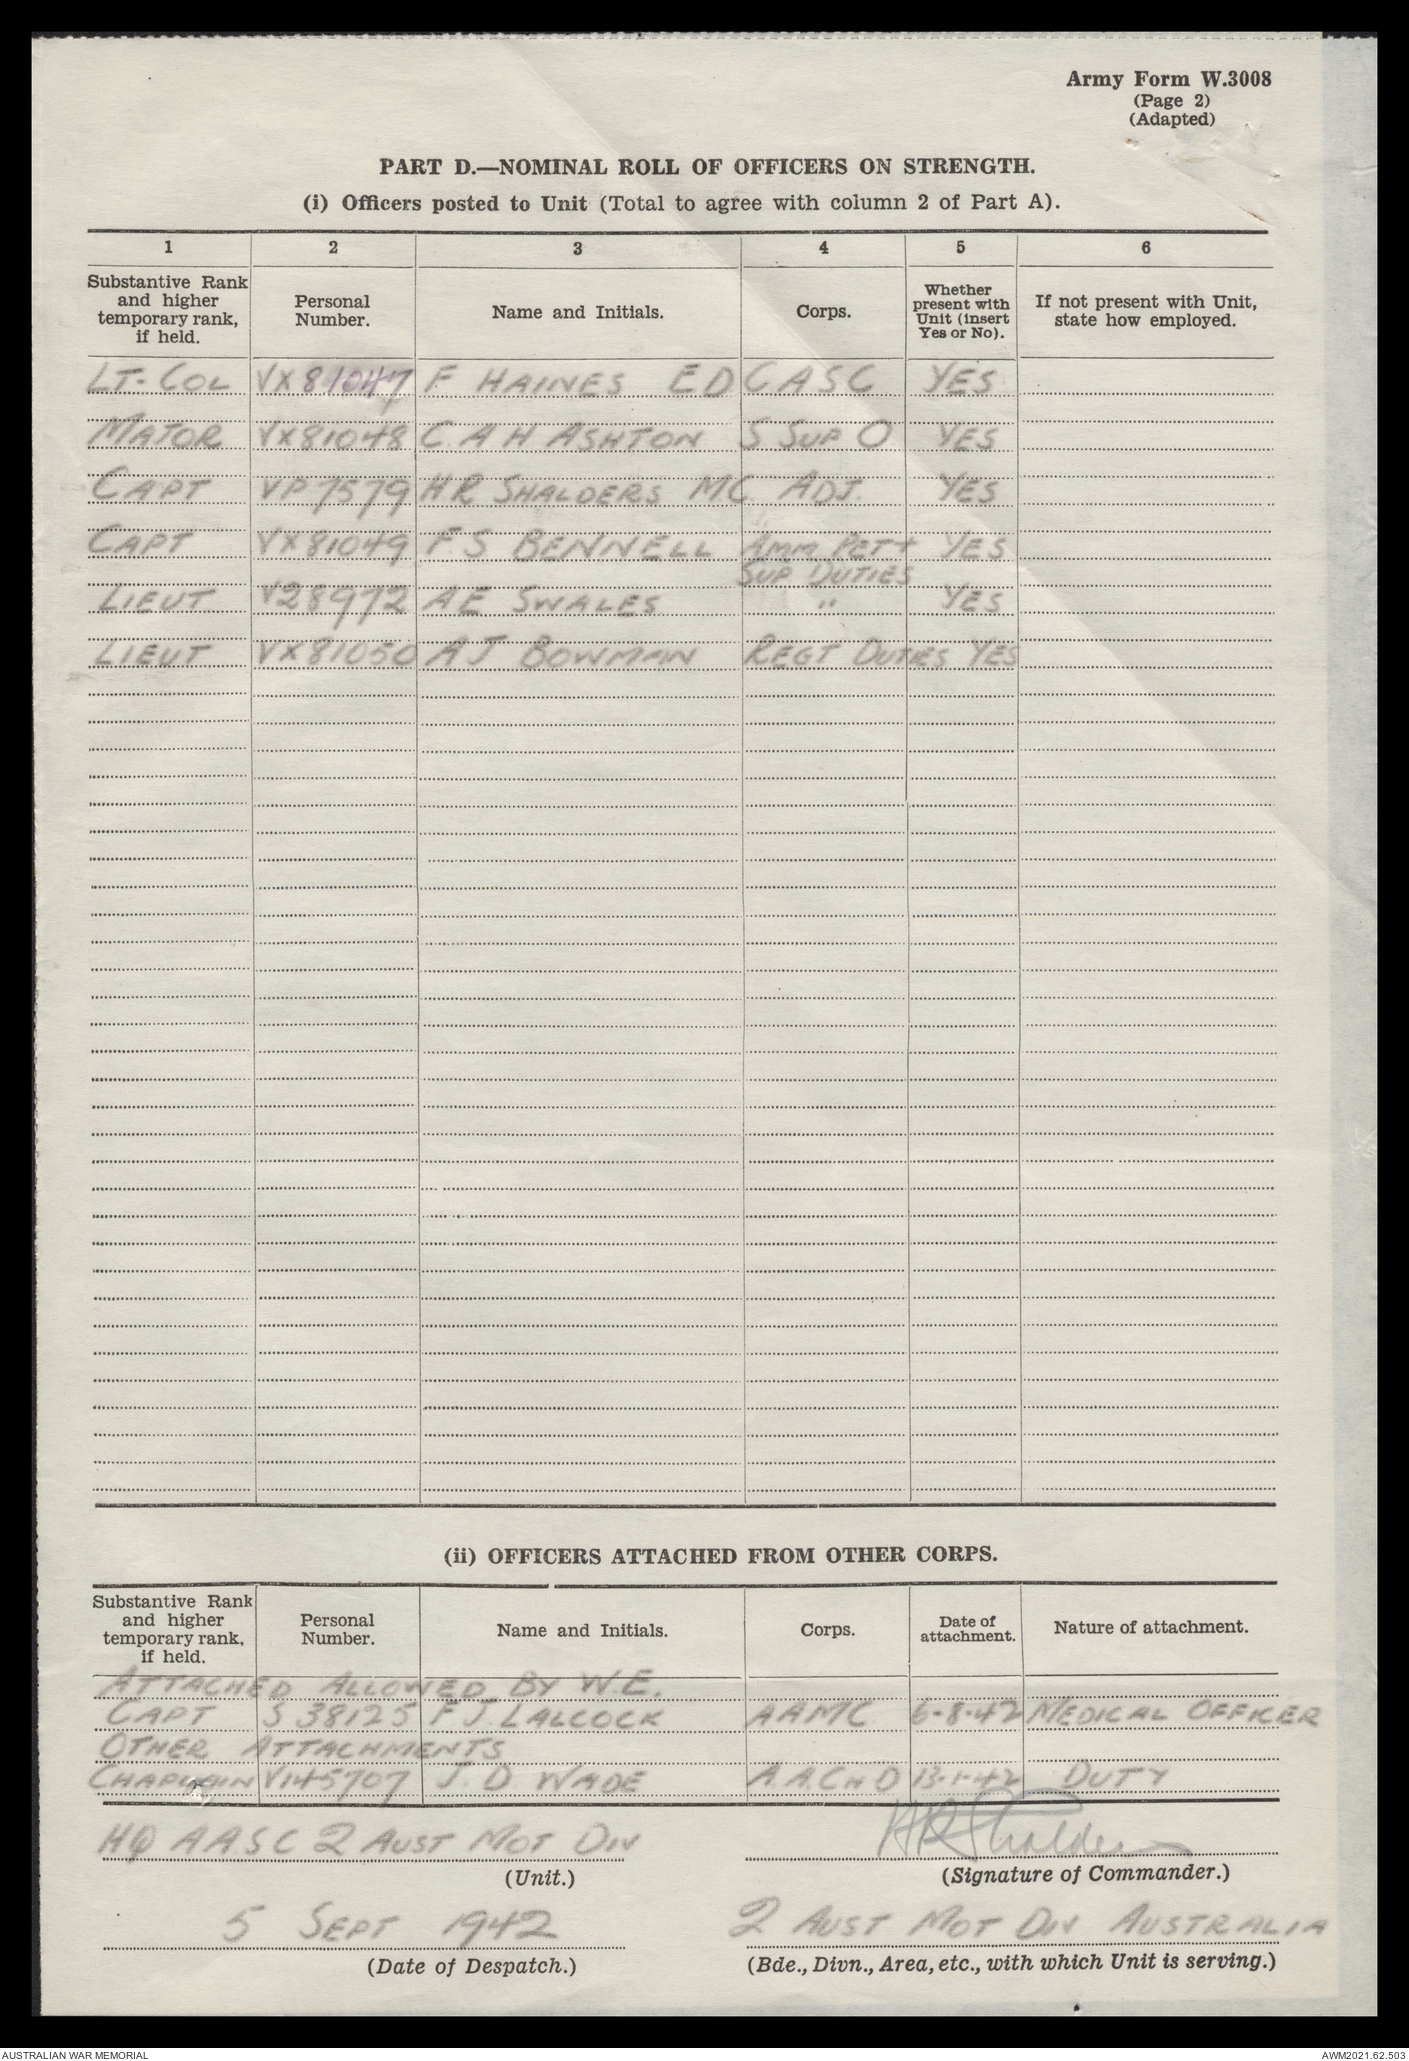 Army Form W.3008
(Page 2)
(Adapted)
PART D.—NOMINAL ROLL OF OFFICERS ON STRENGTH.
(i) Officers posted to Unit (Total to agree with column 2 of Part A).
1 2 3 4 5 6
Substantive Rank and higher temporary rank, if held. Personal Number. Name and Initials. Corps. Whether present with Unit (insert Yes or No). If not present with Unit, state how employed.
LT-COL VX81047 F HAINES ED CASC YES
MAJOR VX81048 C.A H ASHTON S SUP O YES
CAPT VP7579 H.R SHALDERS MC ADJ. YES
CAPT VX81049 F.S BENNELL AMM PET+ YES
SUP DUTIES
LIEUT V28972 AE SWALES " YES
LIEUT VX81050 AJ BOWMAN REGT DUTIES YES
(ii) OFFICERS ATTACHED FROM OTHER CORPS.
Substantive Rank and higher temporary rank, if held. Personal Number. Name and Initials. Corps. Date of attachment. Nature of attachment.
ATTACHED ALLOWED BY W.E.
CAPT S 38125 F J. LALCOCK AAMC 6-8-42 MEDICAL OFFICER
OTHER ATTACHMENTS
CHAPLAIN V145707 J. D WADE A.A.CH D 13-1-42 DUTY
HQ AASC 2 AUST MOT DIV HRShalders
(Unit.) (Signature of Commander.)
5 SEPT 1942 2 AUST MOT DIV AUSTRALIA
(Date of Despatch.) (Bde., Divn., Area, etc., with which Unit is serving.)
AUSTRALIAN WAR MEMORIAL AWM2021.62.503